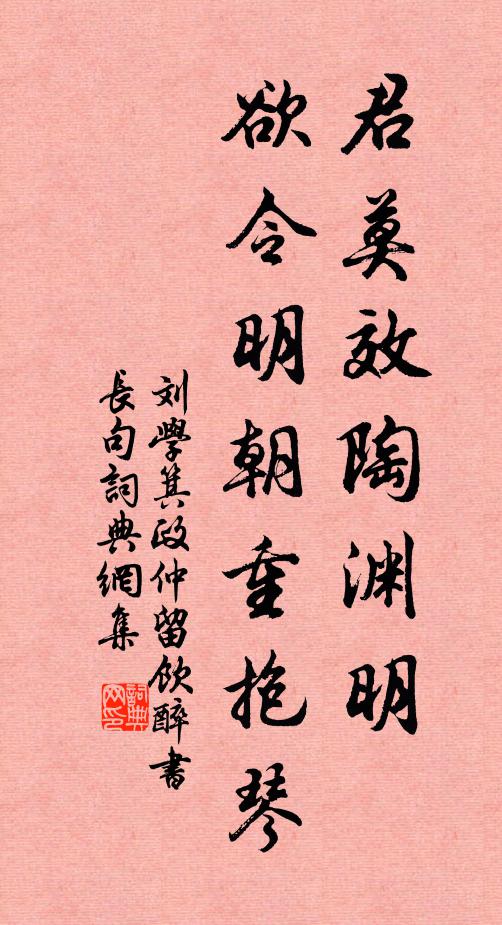 君莫效陶渊明
欲令明朝重抱琴
刘學箕政仲留飲醉書
長句詞典網集
詞典网印